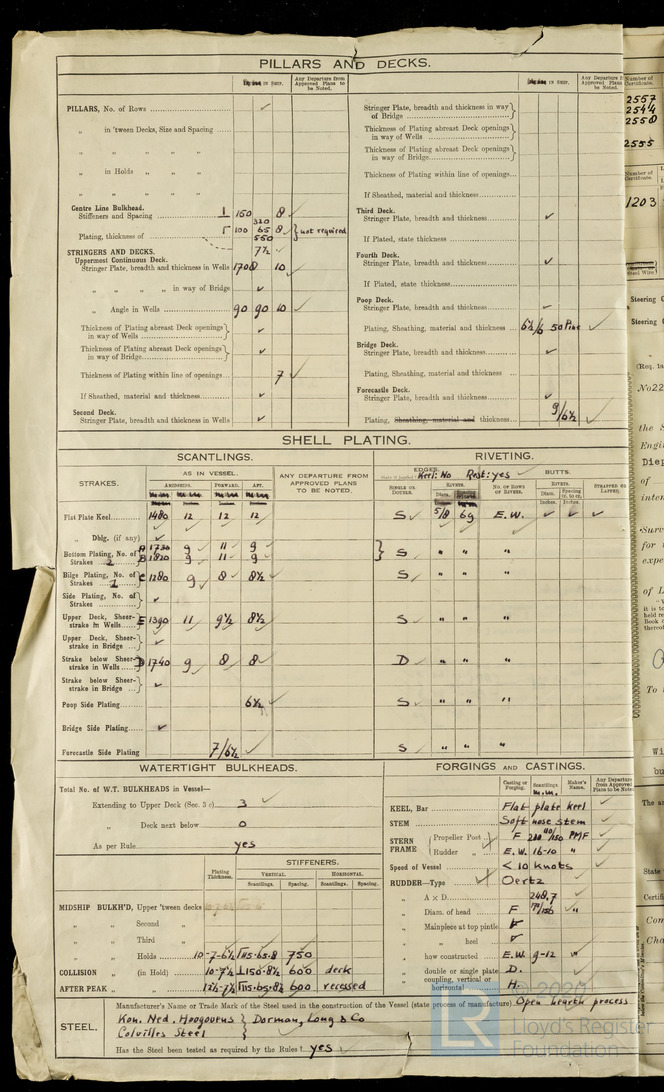 PILLARS AND DECKS.
in Ship.
Any Departure from Approved Plans to be Noted.
PILLARS, No. of Rows ✓
„ in 'tween Decks, Size and Spacing
„ „ „ „ „
„ in Holds „ „
„ „ „ „ „
Centre Line Bulkhead.
Stiffeners and Spacing 150 8 ✓
320
Plating, thickness of 100 65 8 ✓ } not required
550
7½ ✓
STRINGERS AND DECKS.
Uppermost Continuous Deck.
Stringer Plate, breadth and thickness in Wells 1700 10 ✓
„ „ „ „ in way of Bridge ✓
„ Angle in Wells 90 90 10 ✓
Thickness of Plating abreast Deck openings in way of Wells ✓
Thickness of Plating abreast Deck openings in way of Bridge ✓
Thickness of Plating within line of openings 7 ✓
If Sheathed, material and thickness ✓
Second Deck.
Stringer Plate, breadth and thickness in Wells ✓
in Ship.
Any Departure from Approved Plans to be Noted.
Stringer Plate, breadth and thickness in way of Bridge
Thickness of Plating abreast Deck openings in way of Wells
Thickness of Plating abreast Deck openings in way of Bridge
Thickness of Plating within line of openings
If Sheathed, material and thickness
Third Deck.
Stringer Plate, breadth and thickness ✓
If Plated, state thickness
Fourth Deck.
Stringer Plate, breadth and thickness ✓
If Plated, state thickness
Poop Deck.
Stringer Plate, breadth and thickness ✓
Plating, Sheathing, material and thickness 6½/6 50 Pine ✓
Bridge Deck.
Stringer Plate, breadth and thickness ✓
Plating, Sheathing, material and thickness
Forecastle Deck.
Stringer Plate, breadth and thickness ✓
Plating, Sheathing, material and thickness 9/6½ ✓
SHELL PLATING.
SCANTLINGS.
RIVETING.
STRAKES.
AS IN VESSEL.
AMIDSHIPS. FORWARD. AFT.
ANY DEPARTURE FROM APPROVED PLANS TO BE NOTED.
EDGES. Keel: No Rest: yes ✓
BUTTS.
SINGLE OR DOUBLE.
RIVETS.
Diam.
NO. OF ROWS OF RIVETS.
RIVETS.
Diam. Spacing cr. to cr.
Inches. Inches.
STRAPPED OR LAPPED.
Flat Plate Keel 1480 12 12 12 S ✓ 5/8 69 E.W. ✓ ✓ ✓
„ Dblg. (if any) ✓
Bottom Plating, No. of Strakes 2 A 1730 9 11 9
B 1820 9 11 9 } S „ „ „
Bilge Plating, No. of Strakes 1 C 1280 9 8 8½ S „ „ „
Side Plating, No. of Strakes ✓
Upper Deck, Sheerstrake in Wells E 1390 11 9½ 8½ S „ „ „
Upper Deck, Sheerstrake in Bridge ✓
Strake below Sheerstrake in Wells D 1740 9 8 8 D „ „ „
Strake below Sheerstrake in Bridge ✓
Poop Side Plating 6½ ✓ S „ „ „
Bridge Side Plating ✓
Forecastle Side Plating 7/6½ ✓ S „ „ „
WATERTIGHT BULKHEADS.
Total No. of W.T. BULKHEADS in Vessel—
Extending to Upper Deck (Sec. 3 c) 3 ✓
„ Deck next below 0
As per Rule yes
Plating Thickness.
STIFFENERS.
VERTICAL. HORIZONTAL.
Scantlings. Spacing. Scantlings. Spacing.
MIDSHIP BULKH'D, Upper 'tween decks
„ „ Second „
„ „ Third „
„ „ Holds 10-7-6½ 115·65·8 750
COLLISION „ (in Hold) 10-7½ 150·8½ 600 deck
AFTER PEAK „ „ 12½-7½ 115·65·8½ 600 recessed
FORGINGS AND CASTINGS.
Casting or Forging. Scantlings. m.m. Maker's Name. Any Departure from Approved Plans to be Noted
KEEL, Bar Flat plate keel ✓
STEM Soft nose stem ✓
STERN FRAME { Propeller Post F PMF ✓
Rudder „ E.W. 16-10 „ ✓
Speed of Vessel < 10 knots ✓
RUDDER—Type Oertz ✓
„ A x D 248,7
„ Diam. of head F „
„ Mainpiece at top pintle
„ „ heel ✓
„ how constructed E.W. 9-12 „
„ double or single plate D.
„ coupling, vertical or horizontal H.
STEEL.
Manufacturer's Name or Trade Mark of the Steel used in the construction of the Vessel (state process of manufacture) Open hearth process
Kon. Ned. Hoogovens } Dorman, Long & Co
Colvilles Steel
Has the Steel been tested as required by the Rules? yes ✓
Number of Certificate.
2557
2544
2550
2555
Number of Certificate.
1203
Steel Wire
Steering
Steering
No22
the S
Engi
Diep
of
inter
for
expe
of L
To
Wi
bu
State
Certifi
© 2020
LR
Lloyd's Register
Foundation